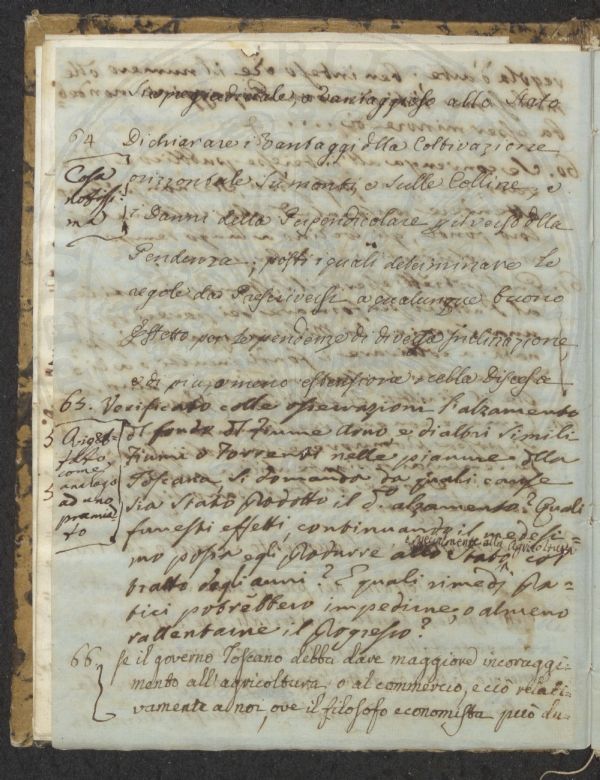 Sia pregiudiciale, o Vantaggioso allo Stato
64 Dichiarare i Vantaggi dlla Coltivazione
orizzontale Su' monti, e Sulle Colline, e
i Danni della Perpendicolare, p il verso dlla
Pendenza; posti i quali determinare Le
regole da Prescriversi a qualunque buono
Effetto per le pendenze di diversa Inclinazione,
e di più, o meno estensione nella Discesa
Cosa
notissi
ma
65. Verificato colle osservazioni l'alzamento
dl fondo dl Fiume Arno e di altri simili
Fiumi o Torrenti nelle pianure dlla
Toscana, si domanda da quali cause
sia stato Prodotto il do. alzamento? Quali
funesti effetti, continuando il medesi=
mo possa egli Produrre allo Stato, especialmente alla Agricoltura col
tratto degli anni? E quali rimedj Pra=
tici potrebbero impedirne, o almeno
rallentarne il Progresso?
Riget=
tato
come
analogo
ad uno
premia
to
66. Se il governo Toscano debba dare maggiore incoraggi=
mento all'agricoltura, o al commercio, e ciò relati=
vamente a noi, ove il filosofo economista può du=